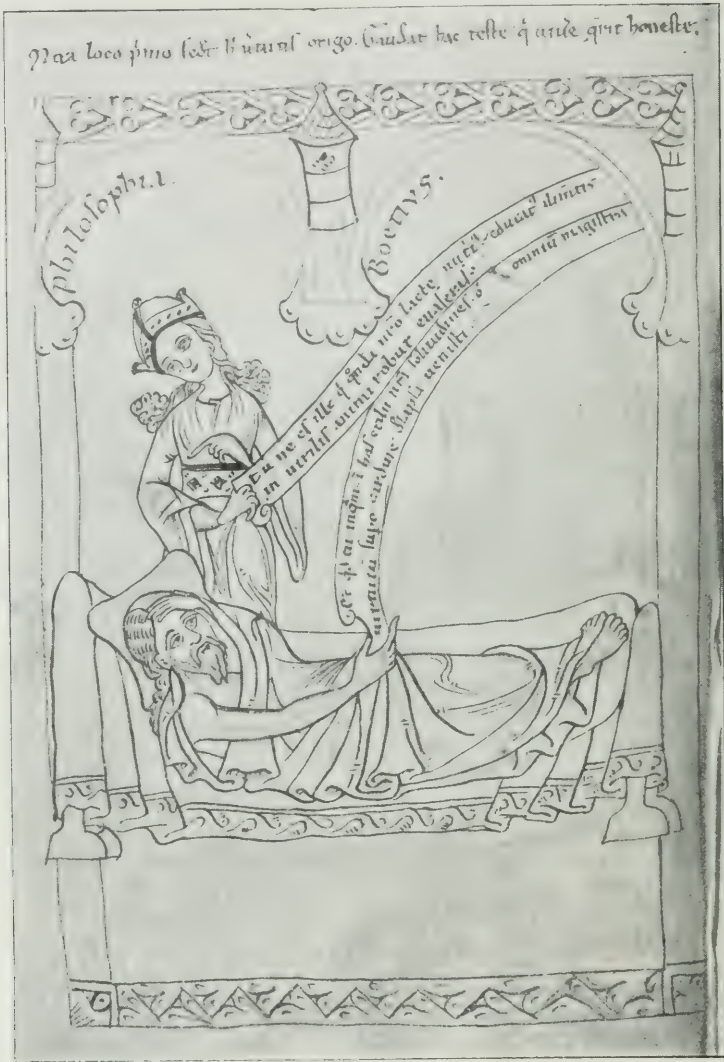 loco p̄mo sedet origo. Gaudet hac teste q̄ q̄rit honeste.
philosophi.a.
Boetius.
tu ne es ille q̄ q̄ndā nr̄o lacte nutͥtꝰ educatꝰ alim̄tis
in uirilis animi robur eualeras
Et q̄d tu inq̄m ī has exilii nr̄i solitudines o omniū magistra
uirtutū supo cardine delapsa uenisti